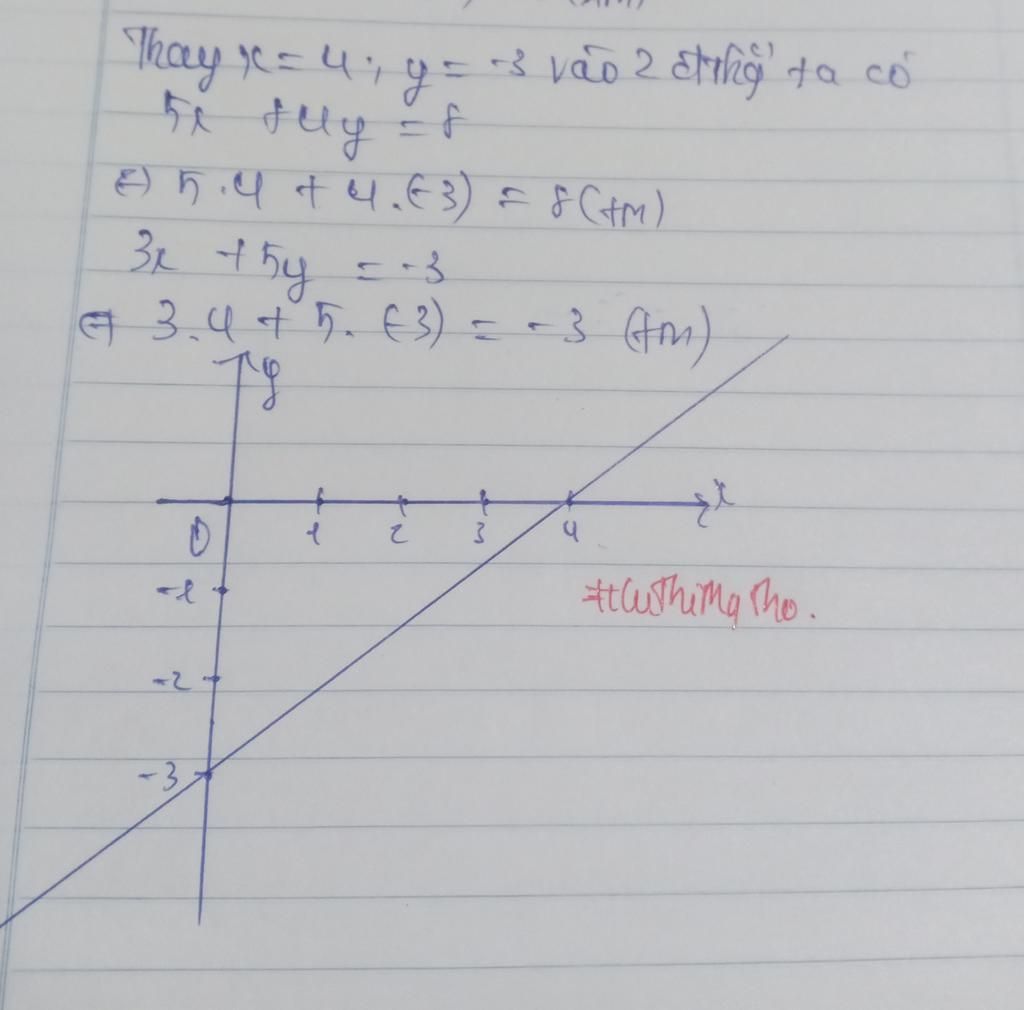 Thay x = 4; y = -3 vào 2 ta có
5x + 4y = 8
⇔ 5.4 + 4.(-3) = 8 (tm)
3x + 5y = -3
⇔ 3.4 + 5.(-3) = -3 (tm)
y
x
0 1 2 3 4
-1
-2
-3